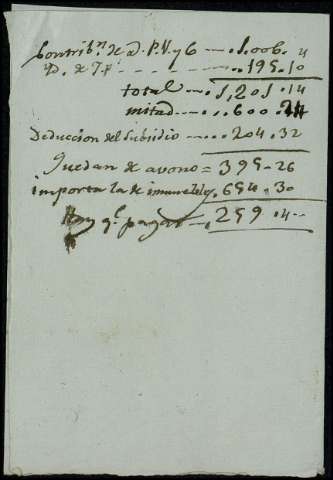 Contribn. de d. P. V. y 6 — . 1.006. 4
Yd. de T. F. — . . 195.10
total — . 1,201.14
mitad — . . 600.24
Deduccion del Subsidio — . . . 204.32
Quedan de avono = 395-26
importa la de inmuebles 654.30
Hay qe. pagar — . 259.4--